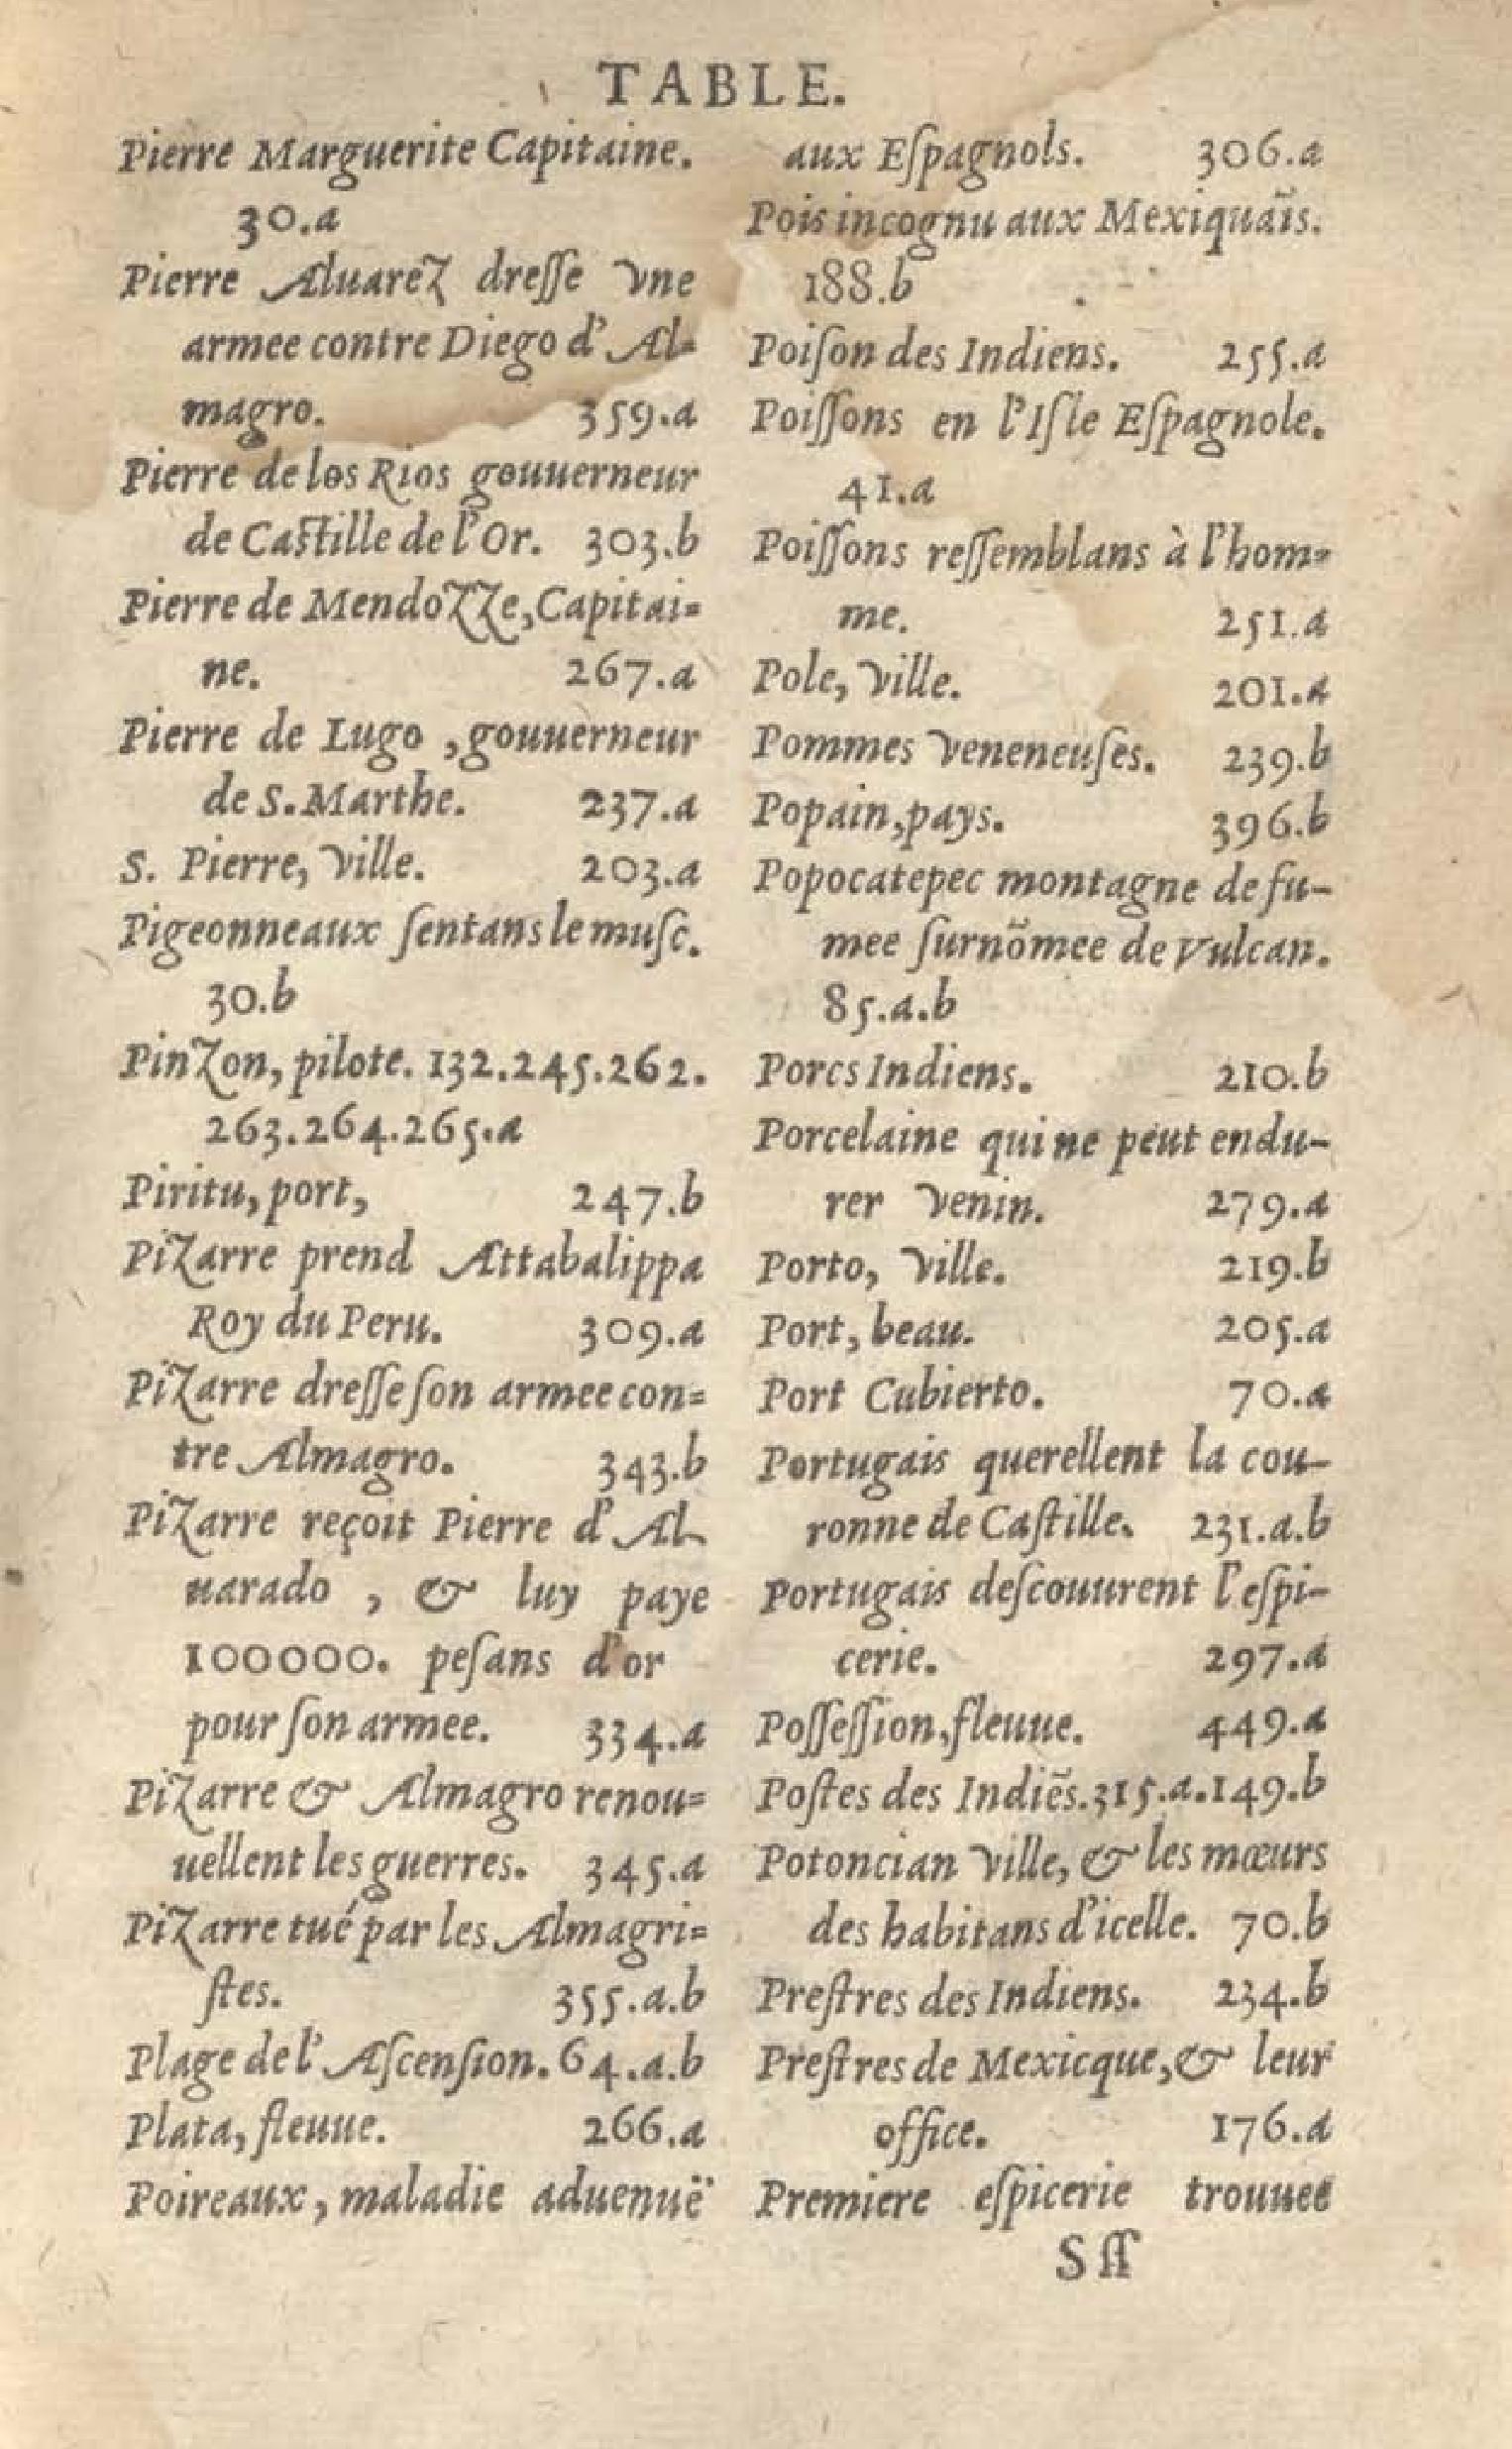 TABLE.
Pierre Marguerite Capitaine.
30.a
Pierre Aluarez dreſſe vne
armee contre Diego d'Al-
magro. 359.a
Pierre de los Rios gouuerneur
de Caſtille de l'Or. 303.b
Pierre de Mendozze, Capitai-
ne. 267.a
Pierre de Lugo , gouuerneur
de S. Marthe. 237.a
S. Pierre, ville. 203.a
Pigeonneaux ſentans le muſc.
30.b
Pinzon, pilote. 132.245.262.
263.264.265.a
Piritu, port, 247.b
Pizarre prend Attabalippa
Roy du Peru. 309.a
Pizarre dreſſe ſon armee con-
tre Almagro. 343.b
Pizarre reçoit Pierre d'Al
uarado , & luy paye
100000. peſans d'or
pour ſon armee. 334.a
Pizarre & Almagro renou-
uellent les guerres. 345.a
Pizarre tué par les Almagri-
ſtes. 355.a.b
Plage de l'Aſcenſion. 64.a.b
Plata, fleuue. 266.a
Poireaux, maladie aduenuë
aux Eſpagnols. 306.a
Pois incognu aux Mexiquaĩs.
188.b
Poiſon des Indiens. 255.a
Poiſſons en l'Iſle Eſpagnole.
41.a
Poiſſons reſſemblans à l'hom-
me. 251.a
Pole, ville. 201.a
Pommes veneneuſes. 239.b
Popain, pays. 396.b
Popocatepec montagne de fu-
mee ſurnõmee de Vulcan.
85.a.b
Porcs Indiens. 210.b
Porcelaine qui ne peut endu-
rer venin. 279.a
Porto, ville. 219.b
Port, beau. 205.a
Port Cubierto. 70.a
Portugais querellent la cou-
ronne de Caſtille. 231.a.b
Portugais deſcouurent l'eſpi-
cerie. 297.a
Poſſeſſion, fleuue. 449.a
Poſtes des Indiẽs. 315.a.149.b
Potoncian ville, & les mœurs
des habitans d'icelle. 70.b
Preſtres des Indiens. 234.b
Preſtres de Mexicque, & leur
office. 176.a
Premiere eſpicerie trouuee
Sſſ